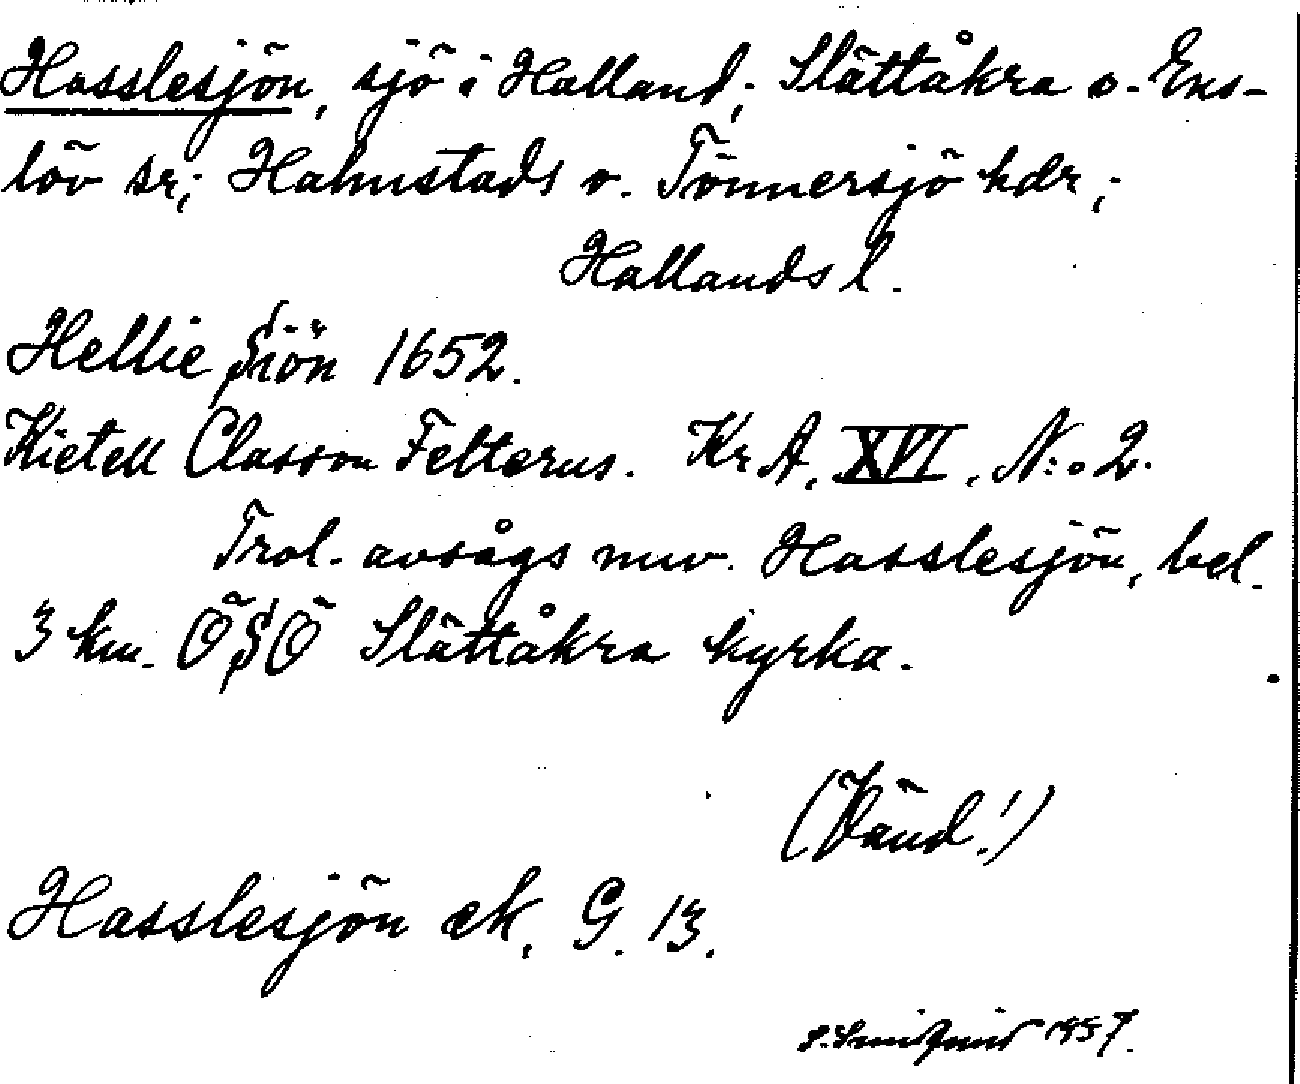 Hasslesjön, sjö i Halland; Slättåkra o. Ens-
löv sr; Halmstads o. Tönnersjö hdr;
Hallands l.
Hellie Siön 1652.
Kietell Classon Felterus. Kr A. XVI. N:o 2.
Trol. avsågs nuv. Hasslesjön, bel.
3 km. ÖSÖ Slättåkra kyrka.
(Vänd!)
Hasslesjön ek. G. 13.
1957.